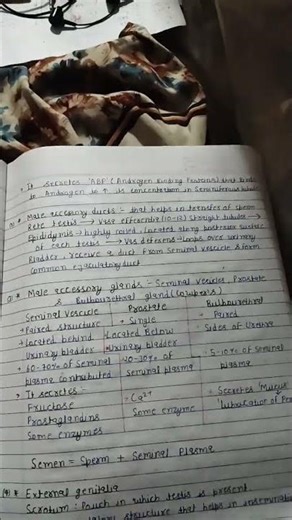 • It secretes 'ABP' (Androgen Binding Protein) that binds
to Androgen to ↑ its concentration in Seminiferous
Male accessory ducts :- that helps in transfer of sperm
Rete testis → Vasa efferentia (10-12) straight tubular →
Epididymis → highly coiled, located along posterior surface
of each testis → Vas deferens → loops over urinary
Bladder, receive a duct from Seminal vesicle & form
common ejaculatory duct
Male accessory glands :- Seminal vesicles, Prostate
& Bulbourethral gland (Cowper's)
Seminal Vesicle Prostate Bulbourethral
• Paired structure • Single • Paired
• Located behind Located Below • Sides of Urethra
Urinary bladder Urinary bladder
• 60-70% of Seminal 20-30% of • 5-10% of seminal
plasma contributed Seminal plasma plasma
• It secretes :- • Ca²⁺ • Secretes 'Mucus'
Fructose Some enzyme lubrication of
Prostaglandins
Some enzymes
Semen = Sperm + Seminal Plasma
External genitalia
Scrotum : Pouch in which testis is present
structure that helps in insemination